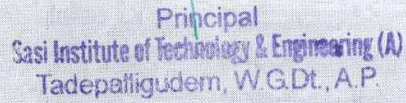 Principal
Sasi Institute of Technology & Engineering (A)
Tadepalligudem, W.G.Dt., A.P.